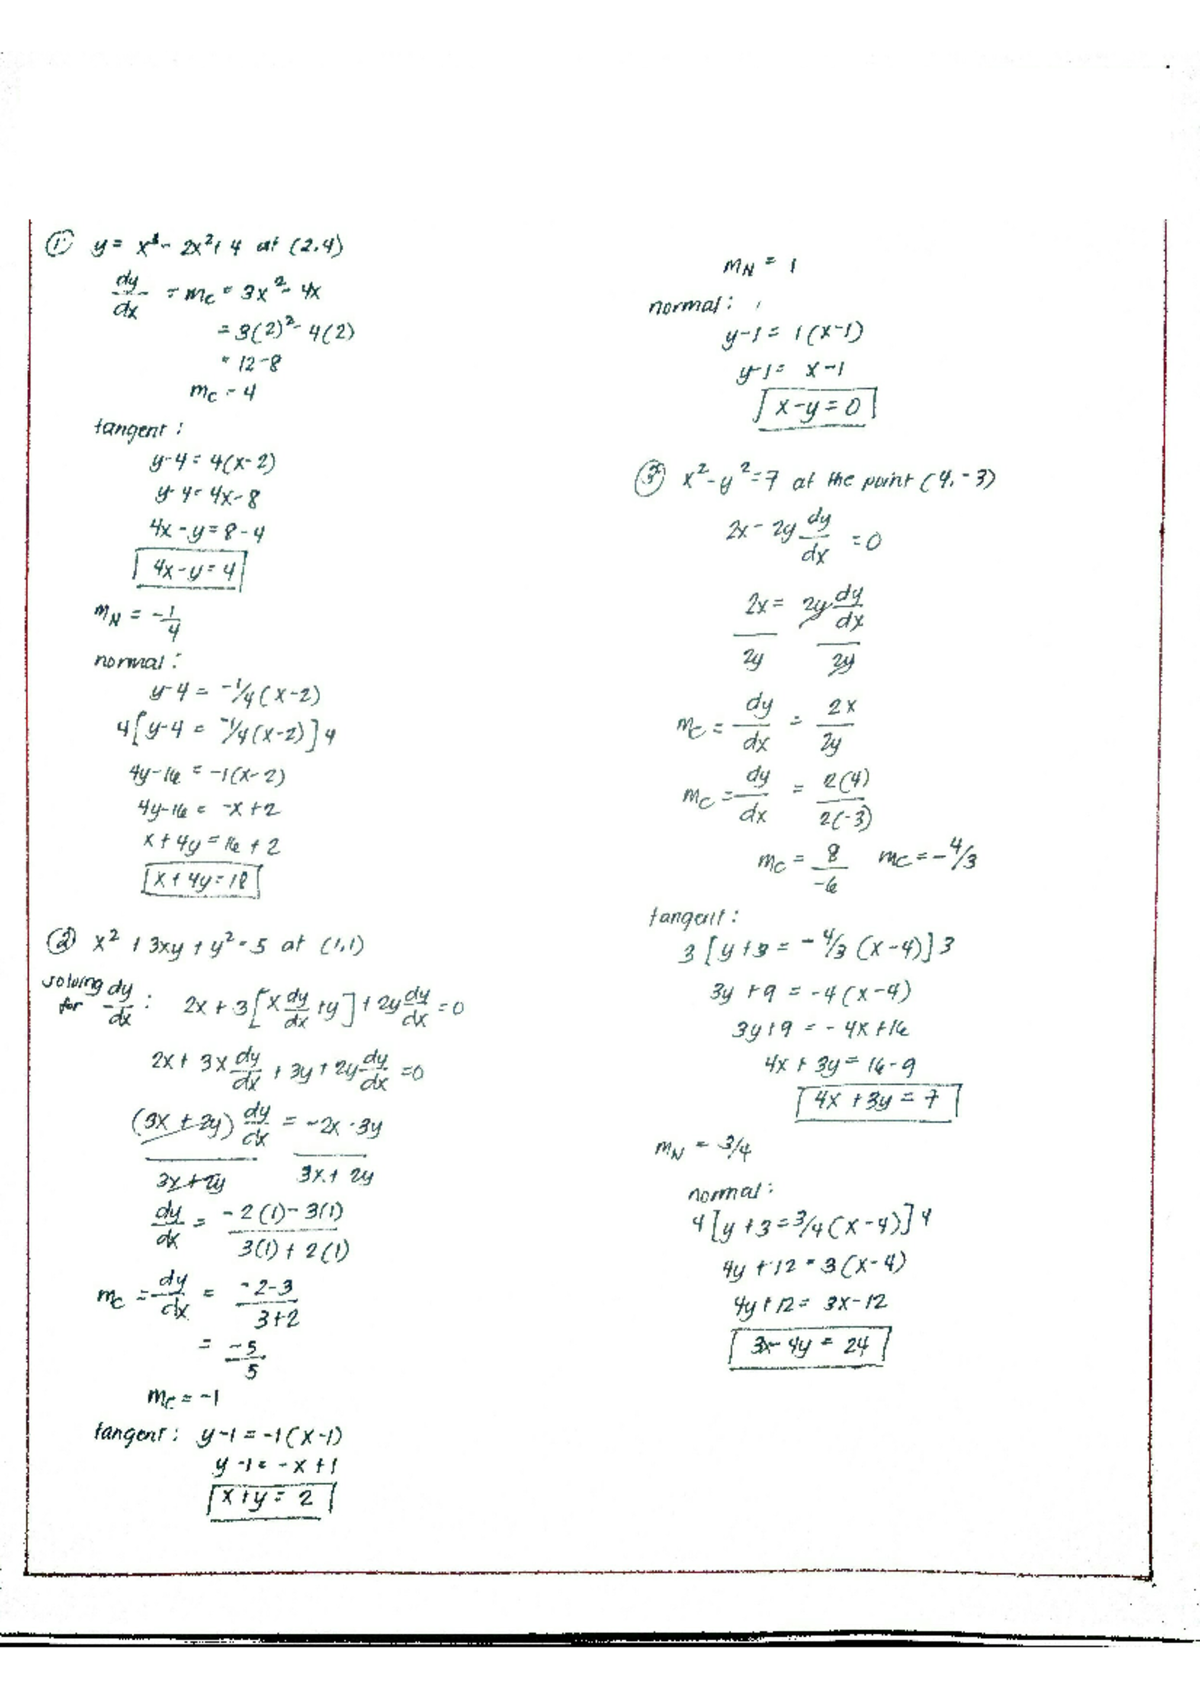 ① y = x³ - 2x² + 4 at (2,4)
dy/dx = mc = 3x² - 4x
= 3(2)² - 4(2)
= 12-8
mc = 4
tangent:
y-4 = 4(x-2)
y-4 = 4x-8
4x-y = 8-4
4x-y = 4
mN = -1/4
normal:
y-4 = -1/4(x-2)
4[y-4 = -1/4(x-2)]4
4y-16 = -1(x-2)
4y-16 = -x+2
x+4y = 16+2
x+4y = 18
② x² + 3xy + y² = 5 at (1,1)
solving for dy/dx : 2x + 3[x dy/dx + y] + 2y dy/dx = 0
2x + 3x dy/dx + 3y + 2y dy/dx = 0
(3x + 2y) dy/dx = -2x - 3y
3x+2y 3x+2y
dy/dx = -2(1)-3(1) / 3(1)+2(1)
mc = dy/dx = -2-3 / 3+2
= -5/5
mc = -1
tangent: y-1 = -1(x-1)
y-1 = -x+1
x+y = 2
mN = 1
normal:
y-1 = 1(x-1)
y-1 = x-1
x-y = 0
③ x²-y²=7 at the point (4,-3)
2x - 2y dy/dx = 0
2x = 2y dy/dx
2y 2y
mc = dy/dx = 2x/2y
mc = dy/dx = 2(4)/2(-3)
mc = 8/-6 mc = -4/3
tangent:
3[y+3 = -4/3(x-4)]3
3y+9 = -4(x-4)
3y+9 = -4x+16
4x+3y = 16-9
4x+3y = 7
mN = 3/4
normal:
4[y+3 = 3/4(x-4)]4
4y+12 = 3(x-4)
4y+12 = 3x-12
3x-4y = 24